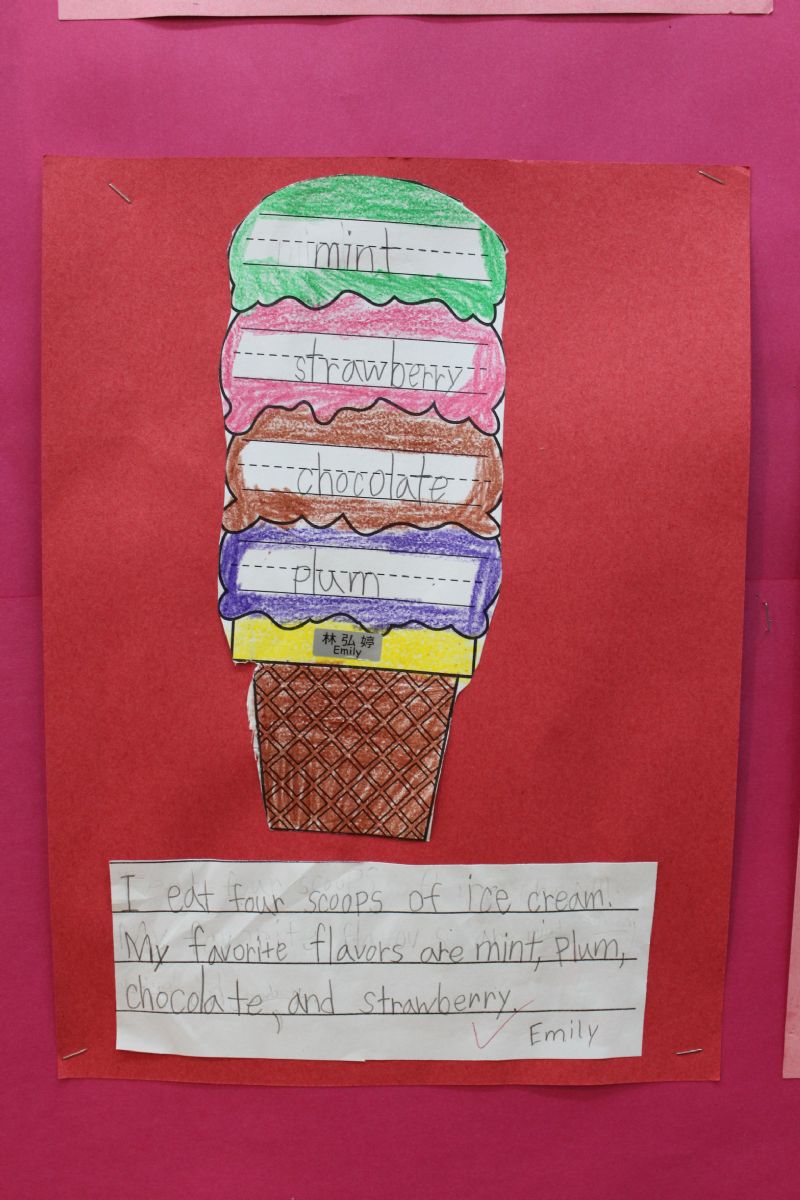 mint
strawberry
chocolate
plum
林弘婷
Emily
I eat four scoops of ice cream.
My favorite flavors are mint, plum,
chocolate, and strawberry.
Emily